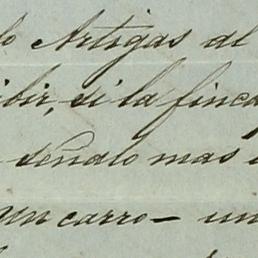 do Artigas al
ibir, si la finca
señalo mas
un carro — un